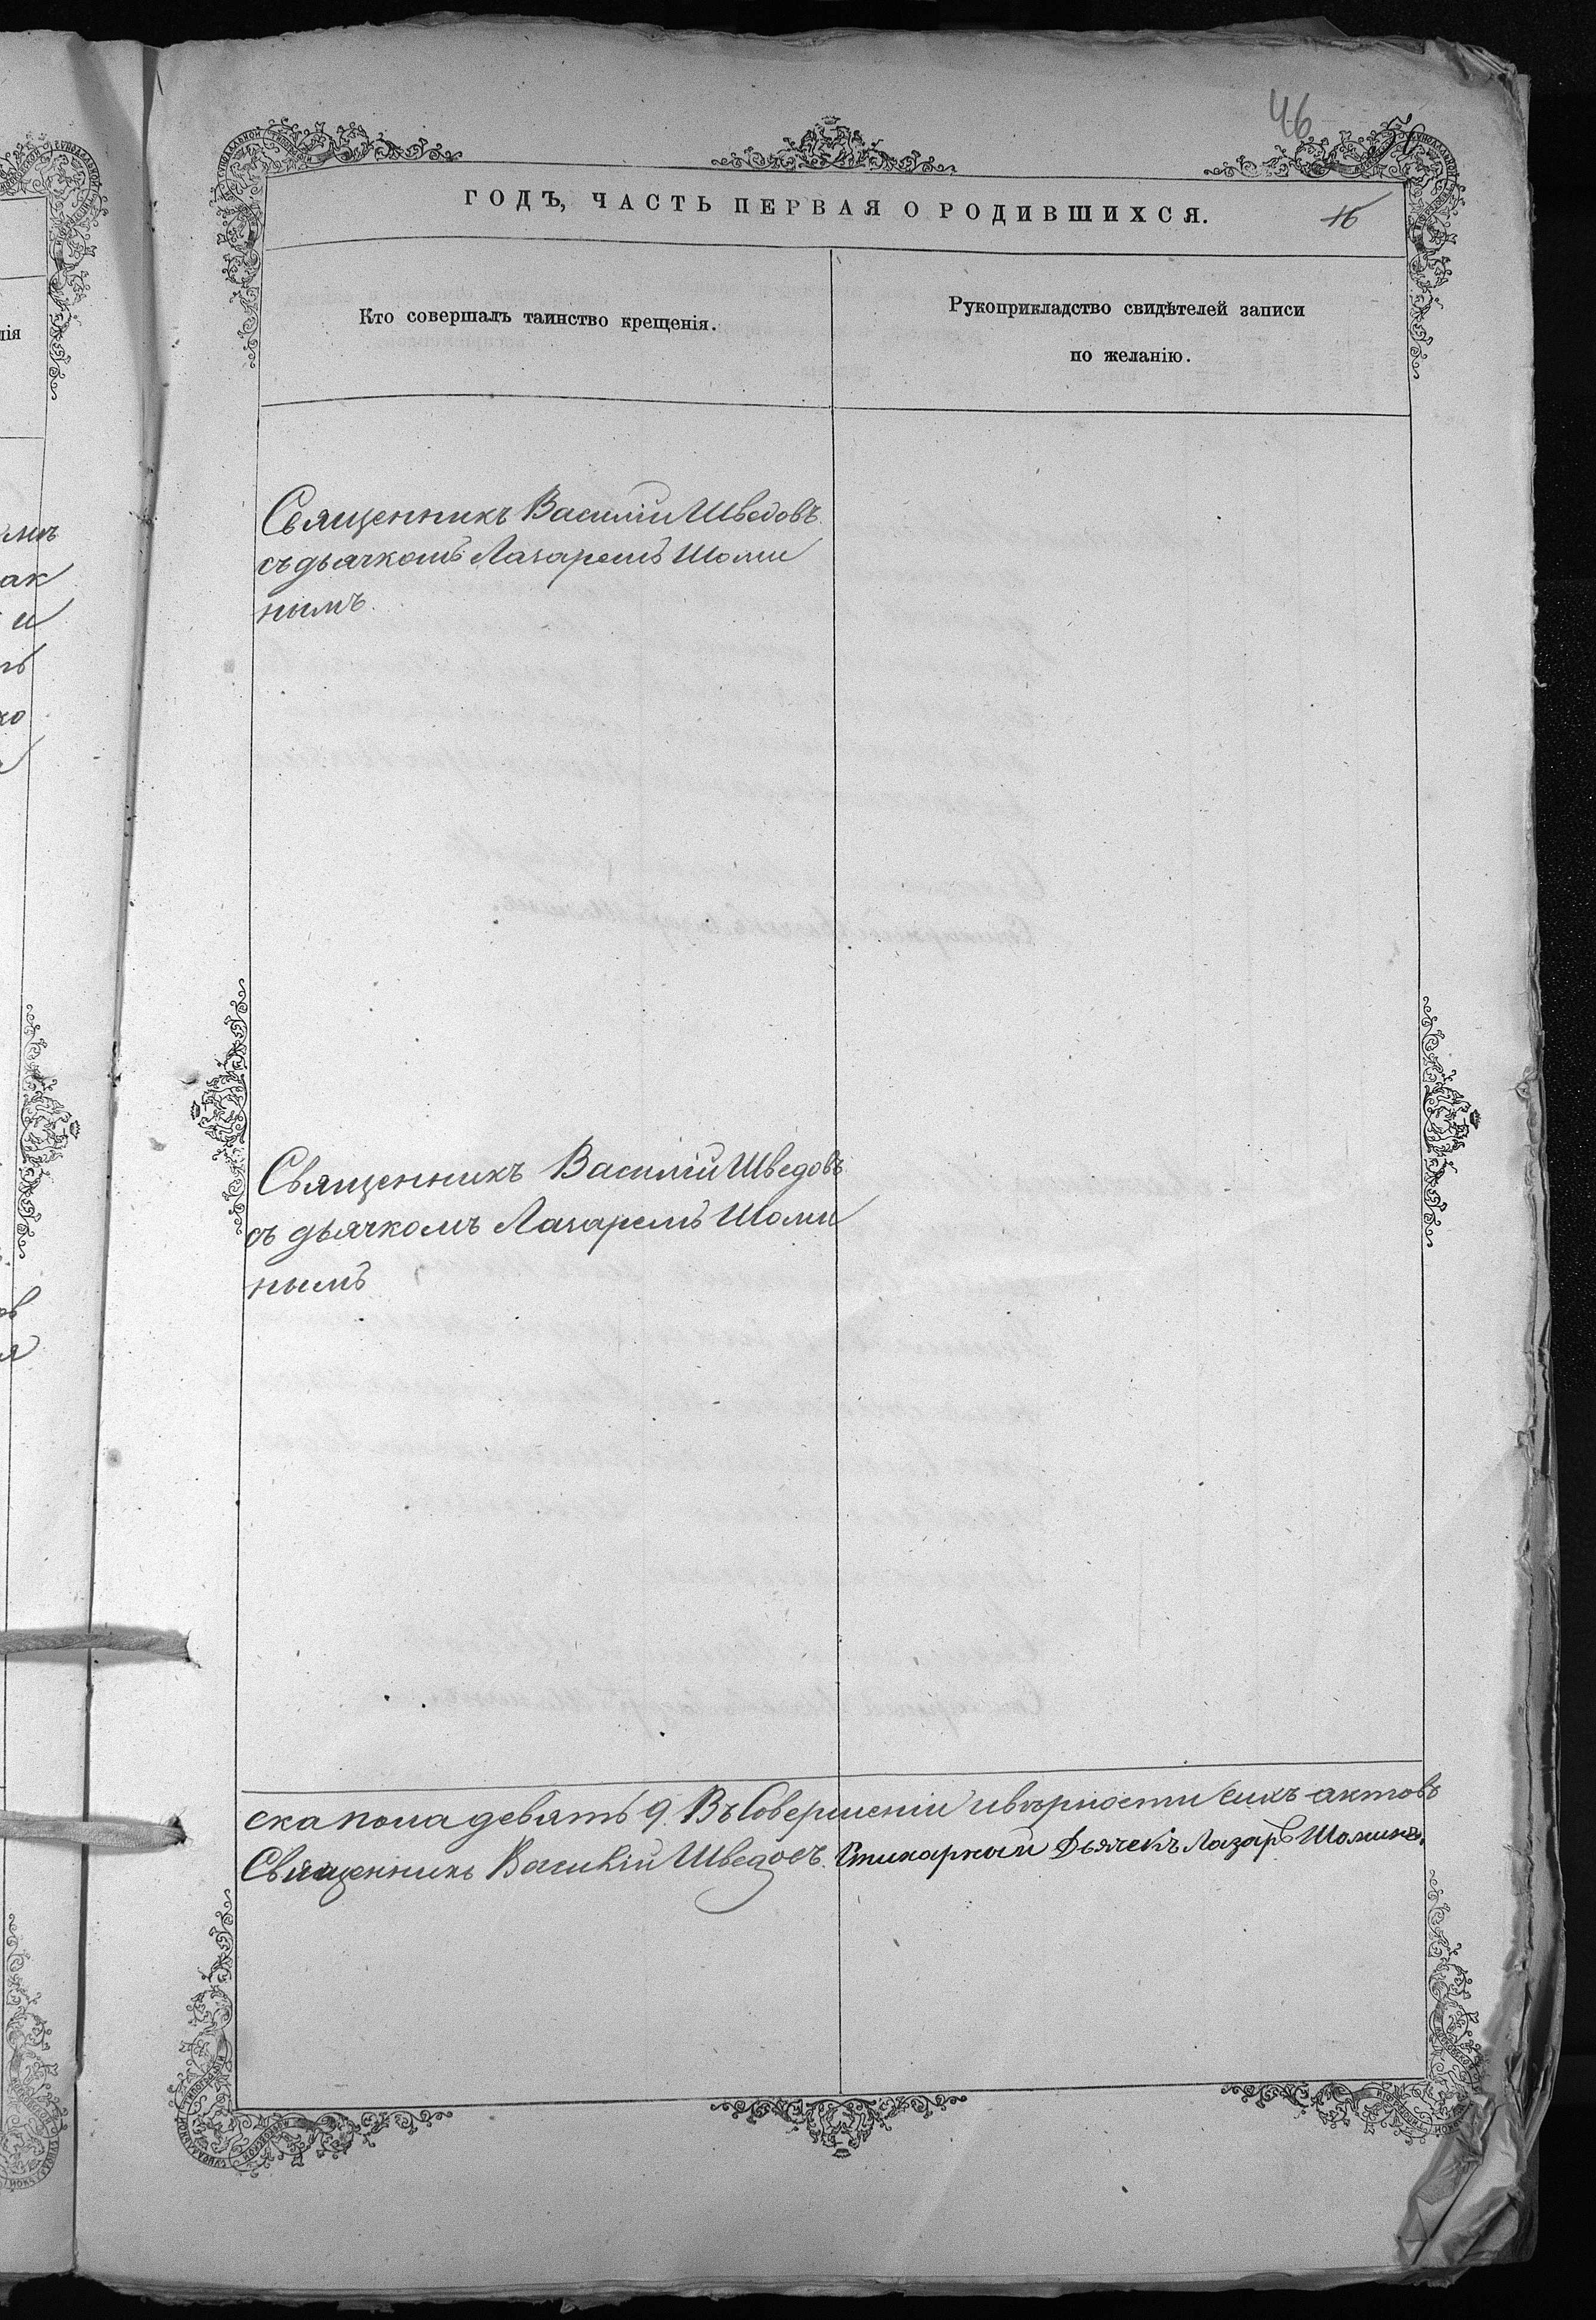 46
50
16
ГОДЪ, ЧАСТЬ ПЕРВАЯ О РОДИВШИХСЯ.
Кто совершалъ таинство крещенія.
Рукоприкладство свидѣтелей записи
по желанію.
Священникъ Василій Шведовъ
съ дьячкомъ Лазаремъ Шоми
нымъ.
Священникъ Василій Шведовъ
съ дьячкомъ Лазаремъ Шоми
нымъ
ска пола девять 9. Въ Совершеніи и вѣрности сихъ актовъ
Священникъ Василій Шведовъ. Стихарный Дьячекъ Лазарь Шоминъ.